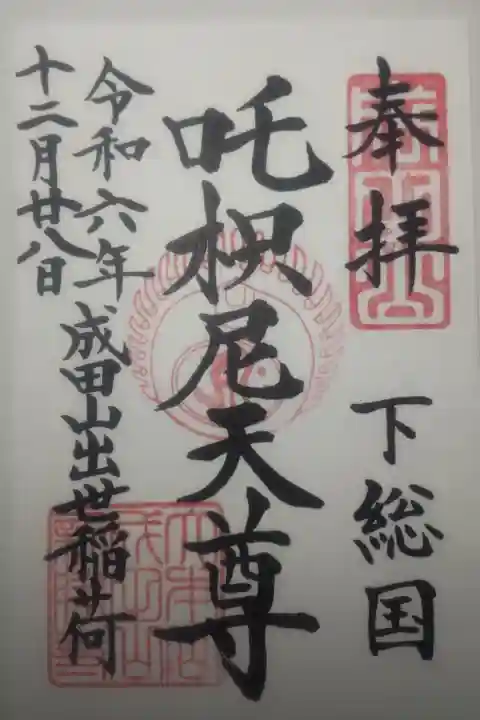 奉拝
下総国
吒枳尼天尊
成田山出世稲荷
令和六年
十二月廿八日